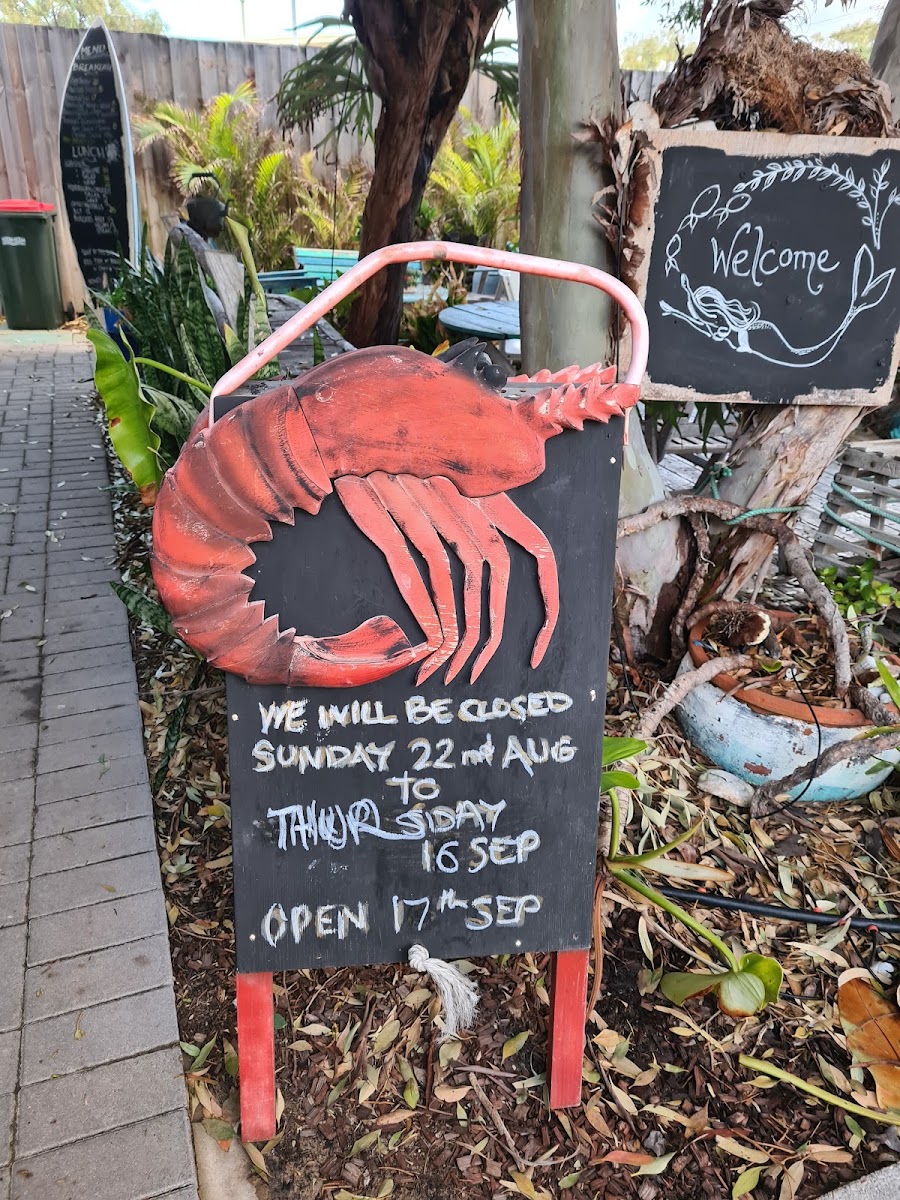 MENU
BREAKFAST
LUNCH
Welcome
WE WILL BE CLOSED
SUNDAY 22nd AUG
TO
THURSDAY
16 SEP
OPEN 17th SEP